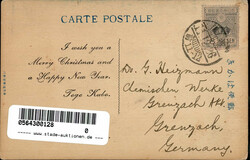 CARTE POSTALE
I wish you a
Merry Christmas and
a Happy New Year.
Togo Kubo.
Dr. G. Heizmann
Chemischen Werke
Grenzach A.G.
Grenzach,
Germany.
0564300128
0
www.stade-auktionen.de